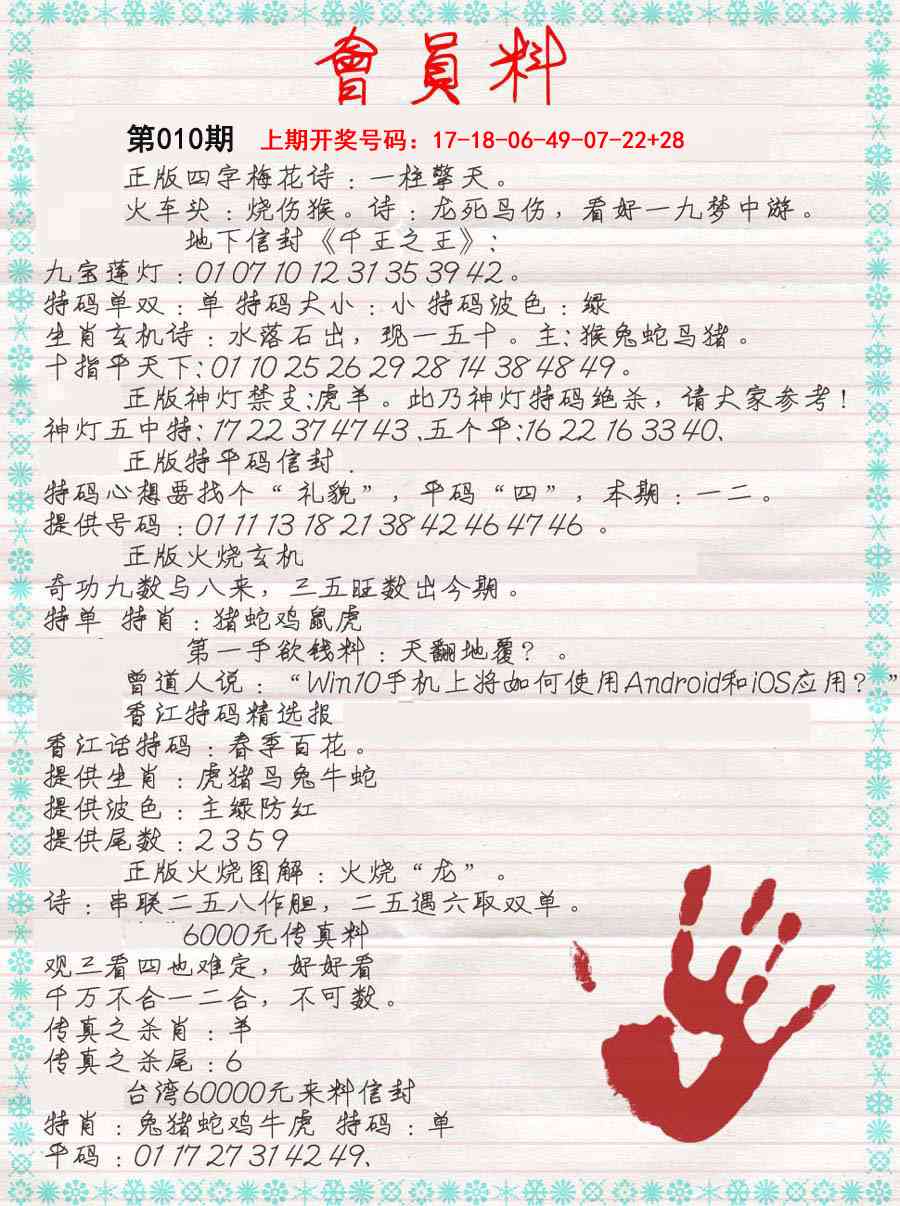 會員料
第010期 上期开奖号码：17-18-06-49-07-22+28
正版四字梅花诗：一柱擎天。
火车头：烧伤猴。诗：龙死鸟伤，看好一九梦中游。
地下信封《千王之王》：
九宝莲灯：01 07 10 12 31 35 39 42。
特码单双：单 特码大小：小 特码波色：绿
生肖玄机诗：水落石出，现一五十。主：猴兔蛇鸟猪。
十指平天下：01 10 25 26 29 28 14 38 48 49。
正版神灯禁支:虎羊。此乃神灯特码绝杀，请大家参考！
神灯五中特：17 22 37 47 43 、五个平:16 22 16 33 40、
正版特平码信封．
特码心想要找个“礼貌”，平码“四”，本期：一二。
提供号码：01 11 13 18 21 38 42 46 47 46 。
正版火烧玄机
奇功九数与八来，三五旺数出今期。
特单 特肖：猪蛇鸡鼠虎
第一手欲钱料：天翻地覆？。
曾道人说：“Win10手机上将如何使用Android和iOS应用？”
香江特码精选报
香江话特码：春季百花。
提供生肖：虎猪鸟兔牛蛇
提供波色：主绿防红
提供尾数：2 3 5 9
正版火烧图解：火烧“龙”。
诗：串联二五八作胆，二五遇六取双单。
6000元传真料
观三看四也难定，好好看
千万不合一二合，不可数。
传真之杀肖：羊
传真之杀尾：6
台湾60000元来料信封
特肖：兔猪蛇鸡牛虎 特码：单
平码：01 17 27 31 42 49、